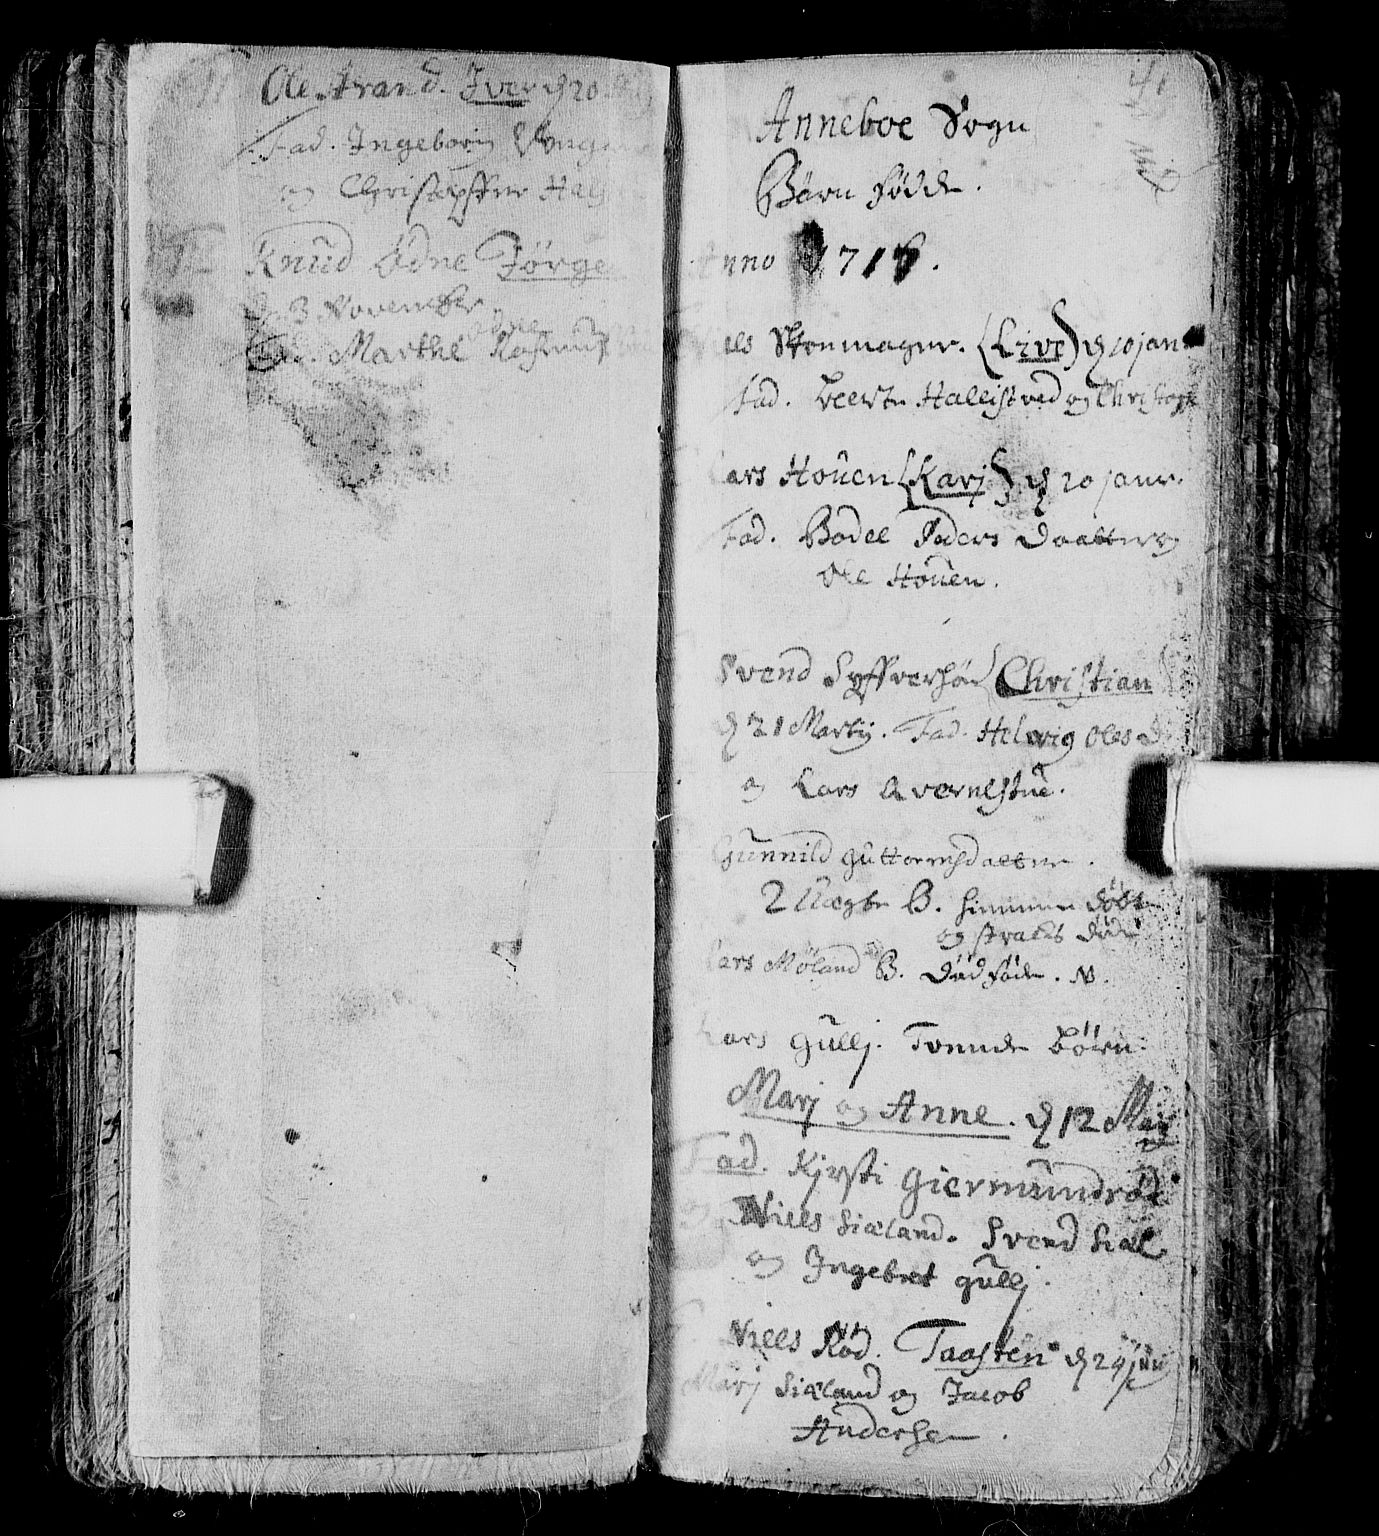 Ole Strand. Iver d 20
Fad. Ingeborig
og Christopffer
Knud Ødne Jørge
d. 3 November.
Marthe Ødne Rasmus
Anneboe Sogn
Børn fødde.
Anno 1716.
Niels Skoumager. (Live) d 10 jan
Fad. Beerte Hallistved og Christop
Lars Houen (Karj) d 20 janu.
Fad. Bodel Peders Daatter og
Ole Houen.
Svend Syffversøn (Christian)
d 21 Martij. Fad. Helwig Oles D
og Lars Qvernestue.
Gunnild Guttormsdatter.
2 Uægte B. hiemme døbt
og strax døde
Lars Møland B. Dødføde. N.
Lars Gullj. Tvende Börn
Marj og Anne. d 12 Maj
Fad. Kjrsti Giermundrød
Niels Siæland. Svend Siæl
og Ingebret Gullj.
Niels Röd. Taasten d 24 juni
Marj Siæland og Jacob
Andersen.